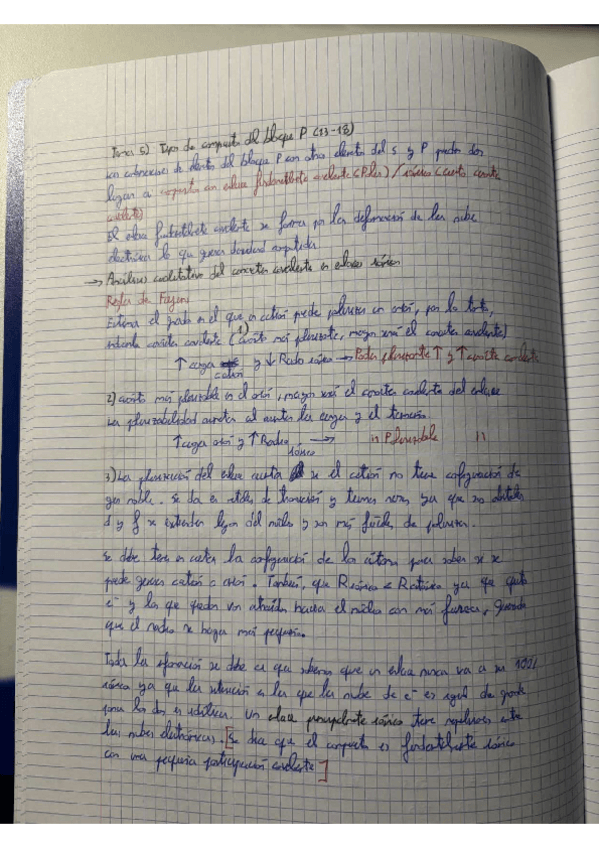 Tema 5) Tipo de compuestos del bloque P (13-18)
Las combinaciones de elementos del bloque P con otros elementos del s y P pueden dar
lugar a compuestos con enlace fundamentalmente covalente (Polar) / iónico (cierto carácter
covalente)
El enlace fundamentalmente covalente se forma por la deformación de las nubes
electrónicas lo que genera densidad compartida
→ Análisis cualitativo del carácter covalente en enlaces iónicos
Reglas de Fajans
Estima el grado en el que un catión puede polarizar un anión, por lo tanto,
carácter covalente (1) catión más polarizante, mayor será el carácter covalente)
↑ carga catión y ↓ Radio iónico → Poder polarizante ↑ y ↑ carácter covalente
2) Cuanto más polarizable es el anión, mayor será el carácter covalente del enlace
La polarizabilidad aumenta al aumentar la carga y el tamaño.
↑ carga anión y ↑ Radio iónico → " Polarizable "
3) La polarización del enlace aumenta si el catión no tiene configuración de
gas noble. Se da en metales de transición y tierras raras ya que sus orbitales
d y f se extienden lejos del núcleo y son más fáciles de polarizar.
Se debe tener en cuenta la configuración de los átomos para saber si se
puede generar catión o anión. También, que R iónico < R atómico ya que quita
e⁻ y los que quedan van atraídos hacia el núcleo con más fuerza, haciendo
que el radio se haga más pequeño.
Toda la información se debe a que sabemos que un enlace nunca va a ser 100%
iónico ya que la situación en la que la nube de e⁻ es igual de grande
para los dos es idílica. Un enlace principalmente iónico tiene repulsiones entre
las nubes electrónicas. [Se dice que el compuesto es fundamentalmente iónico
con una pequeña participación covalente]